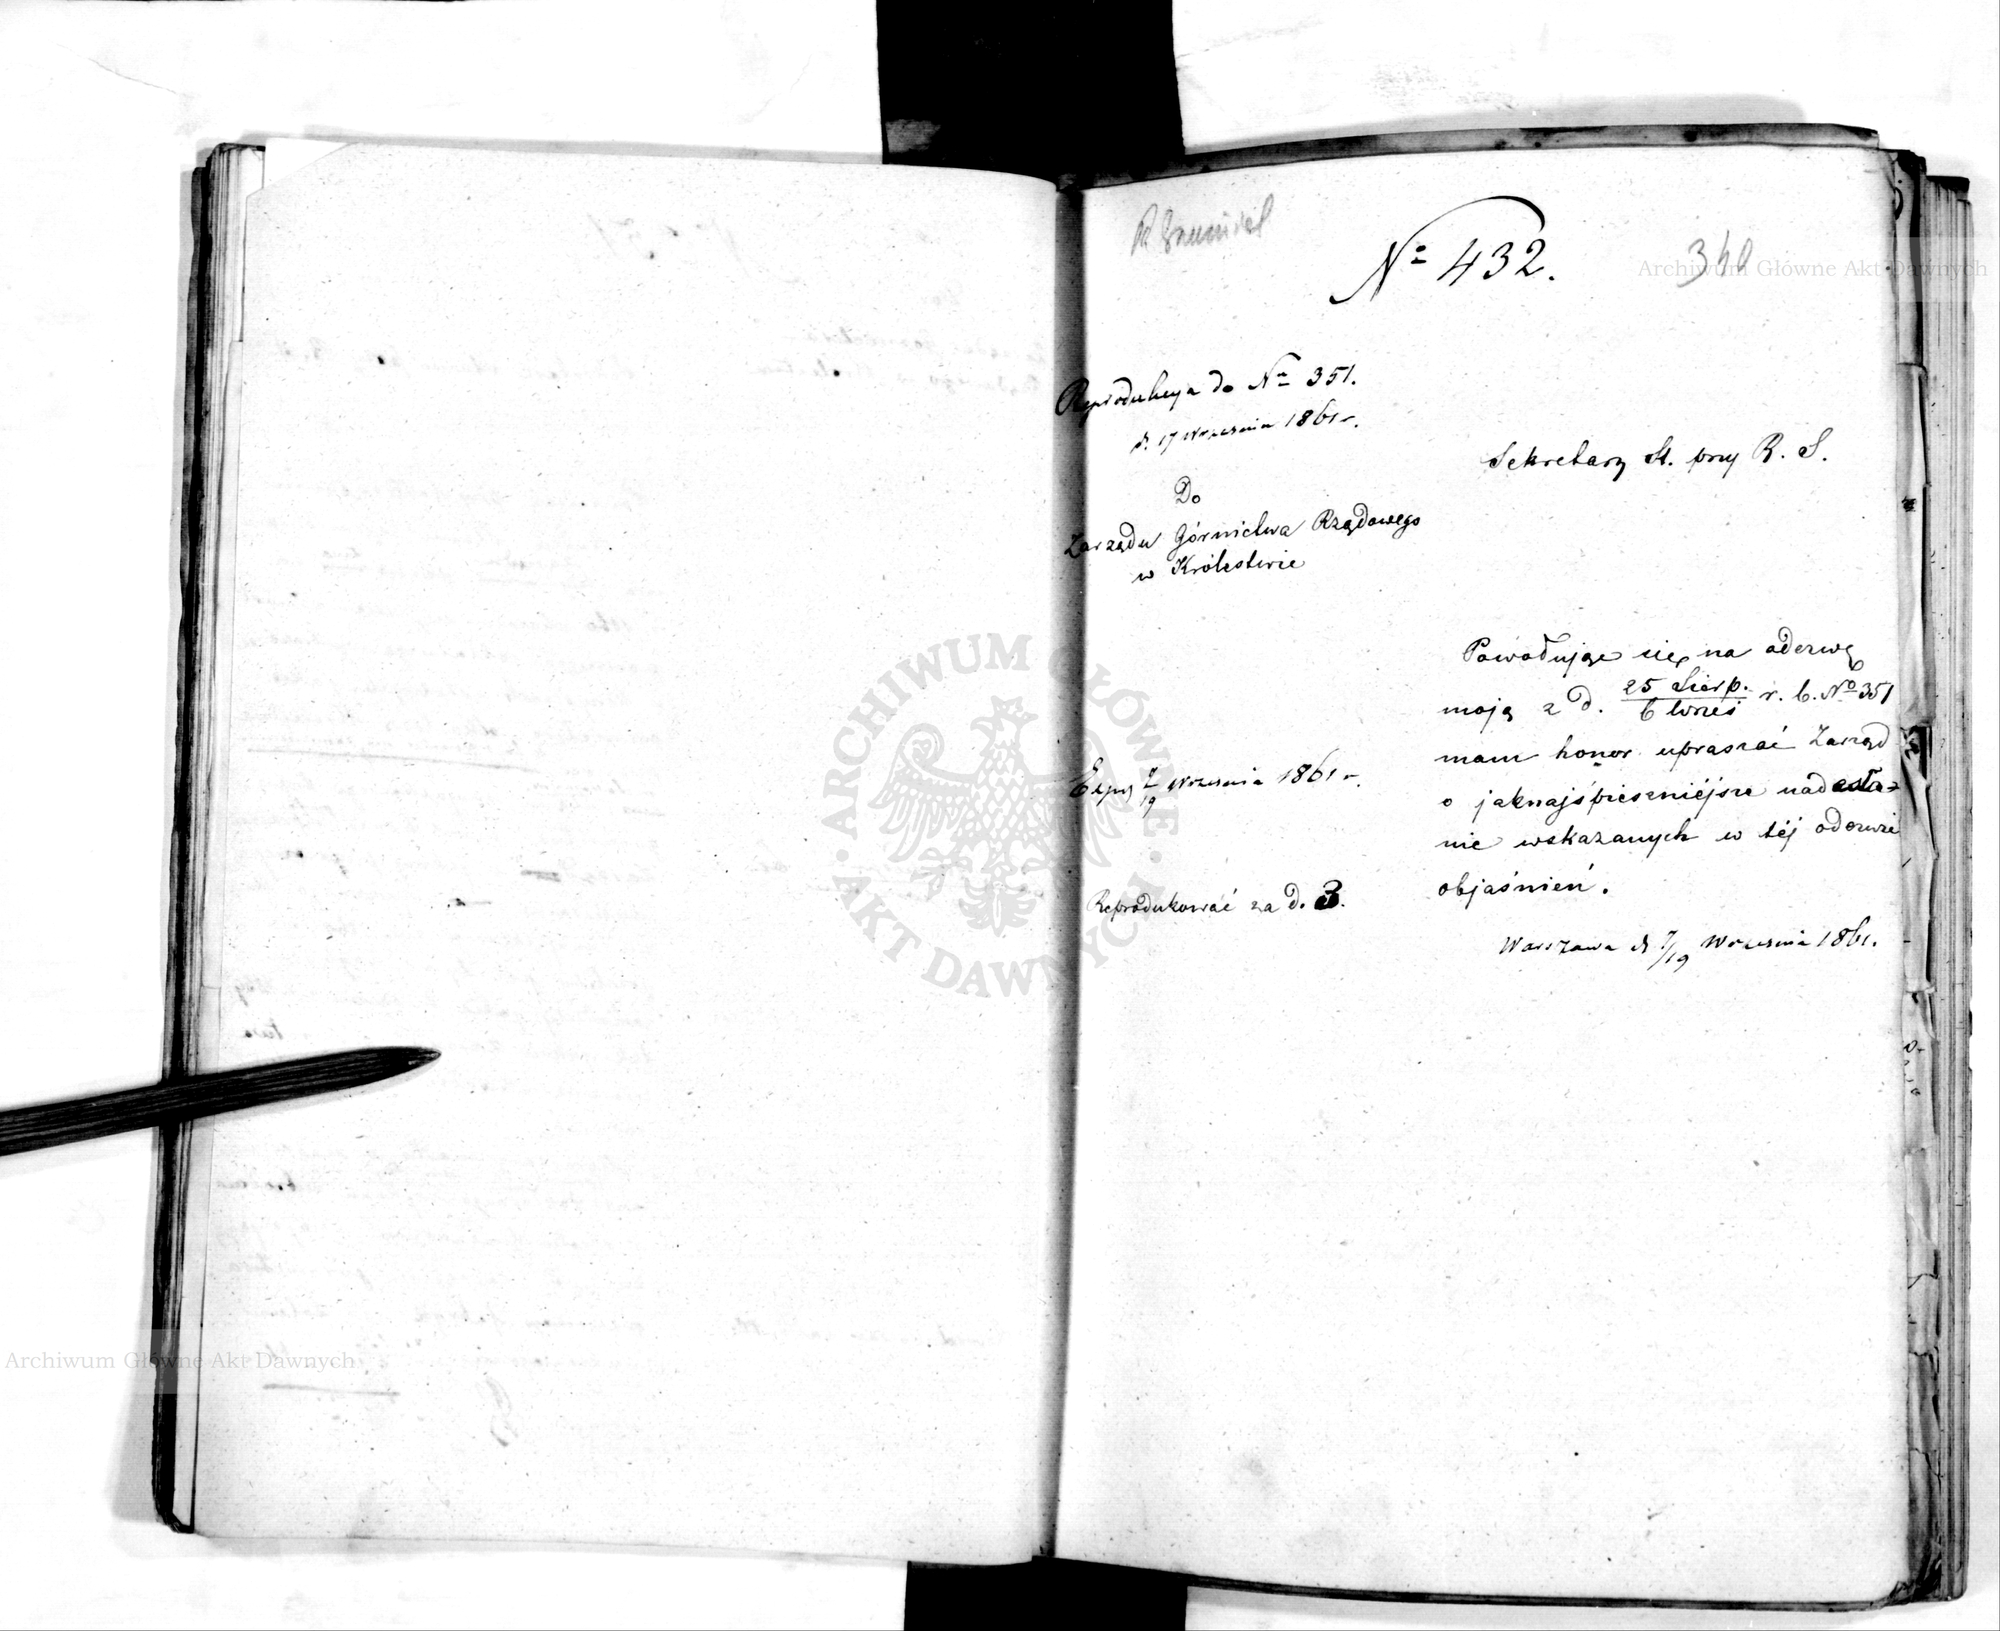 № 432.
340
Reprodukcya do № 351.
d. 17 Września 1861 r.
Sekretarz St. przy R. S.
Do
Zarządu Górnictwa Rządowego
w Królestwie
Powołując się na odezwę
moją z d. 25 Sierp. / 6 Wrześ r. b. № 351
mam honor upraszać Zarząd
o jaknajśpieszniéjsze nadesła-
nie wskazanych w téj odezwie
objaśnień.
Warszawa d 7/19 Września 1861.
Exp. 7/19 Września 1861 r.
Reprodukować za d. 3.
Archiwum Główne Akt Dawnych
ARCHIWUM GŁÓWNE
AKT DAWNYCH
Archiwum Główne Akt Dawnych